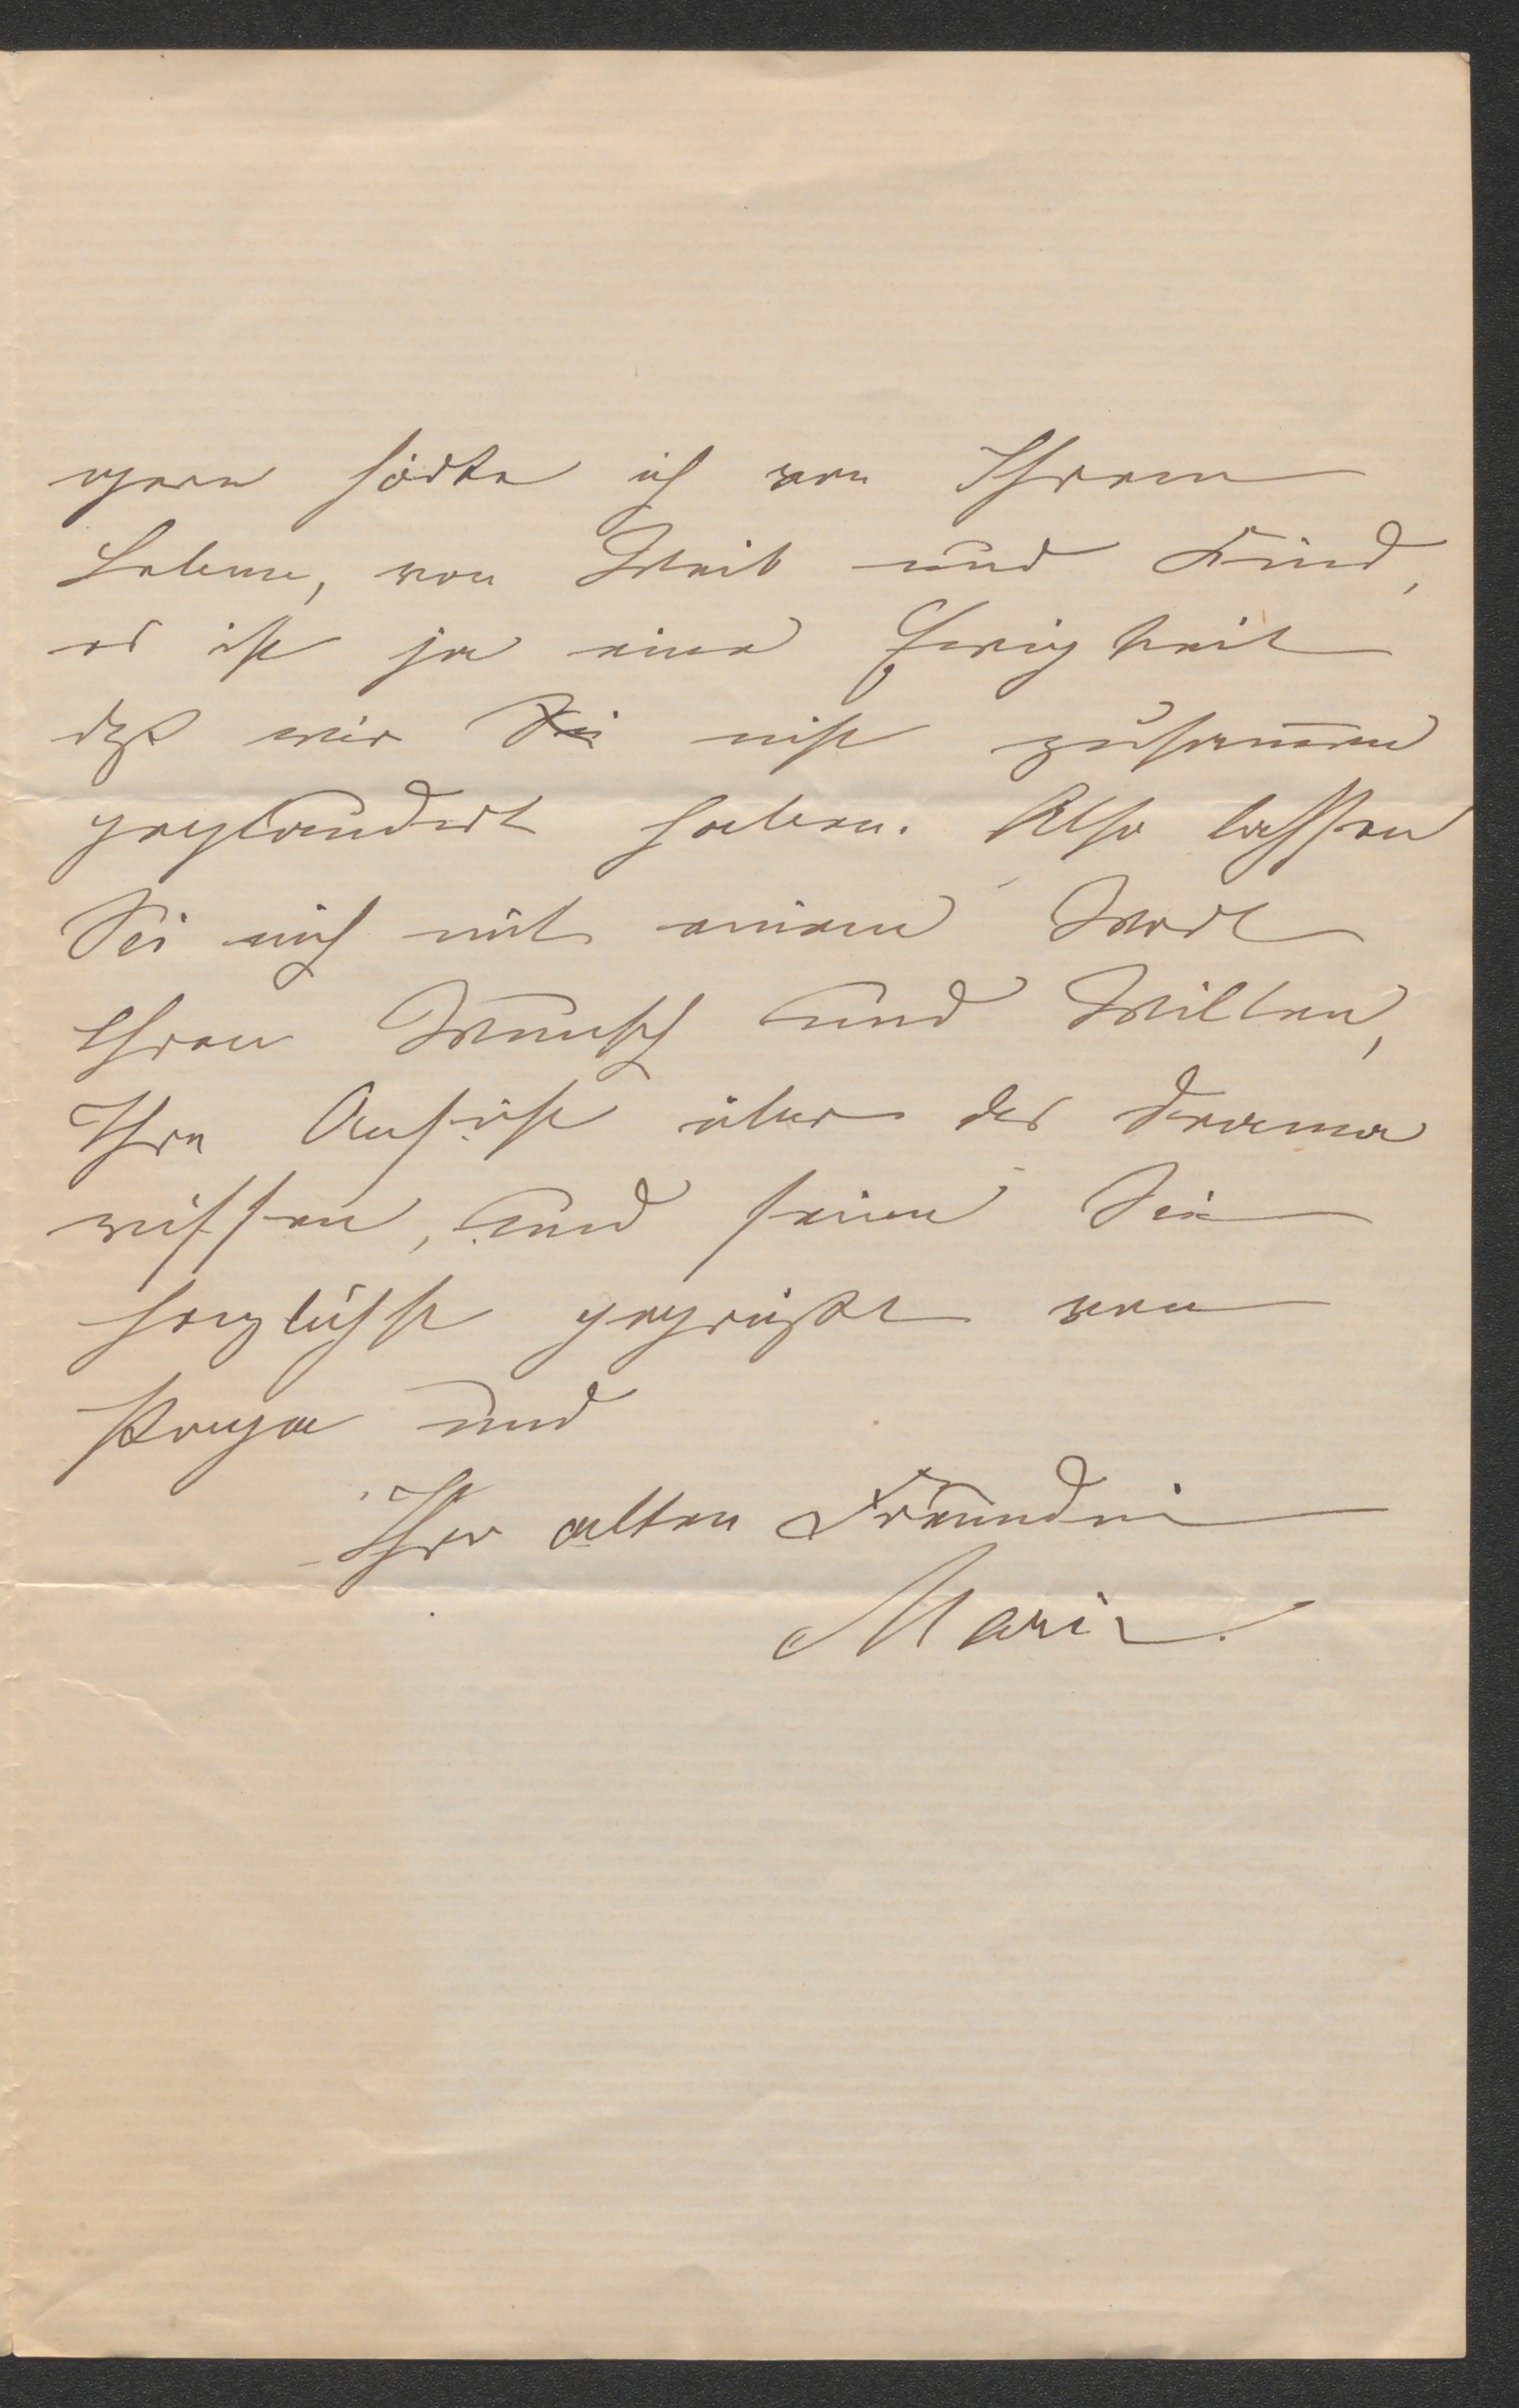 gern hörte ich von Ihrem
Leben, von Weib und Kind,
es ist ja eine Ewigkeit
daß wir Sie nicht zusammen
geplaudert haben. Also lassen
Sie mich mit einem Wort
Ihren Wunsch und Willen,
Ihre Ansicht über das Drama
wissen, und seien Sie
herzlichst gegrüßt von
und
Ihrer alten Freundin
Marie.